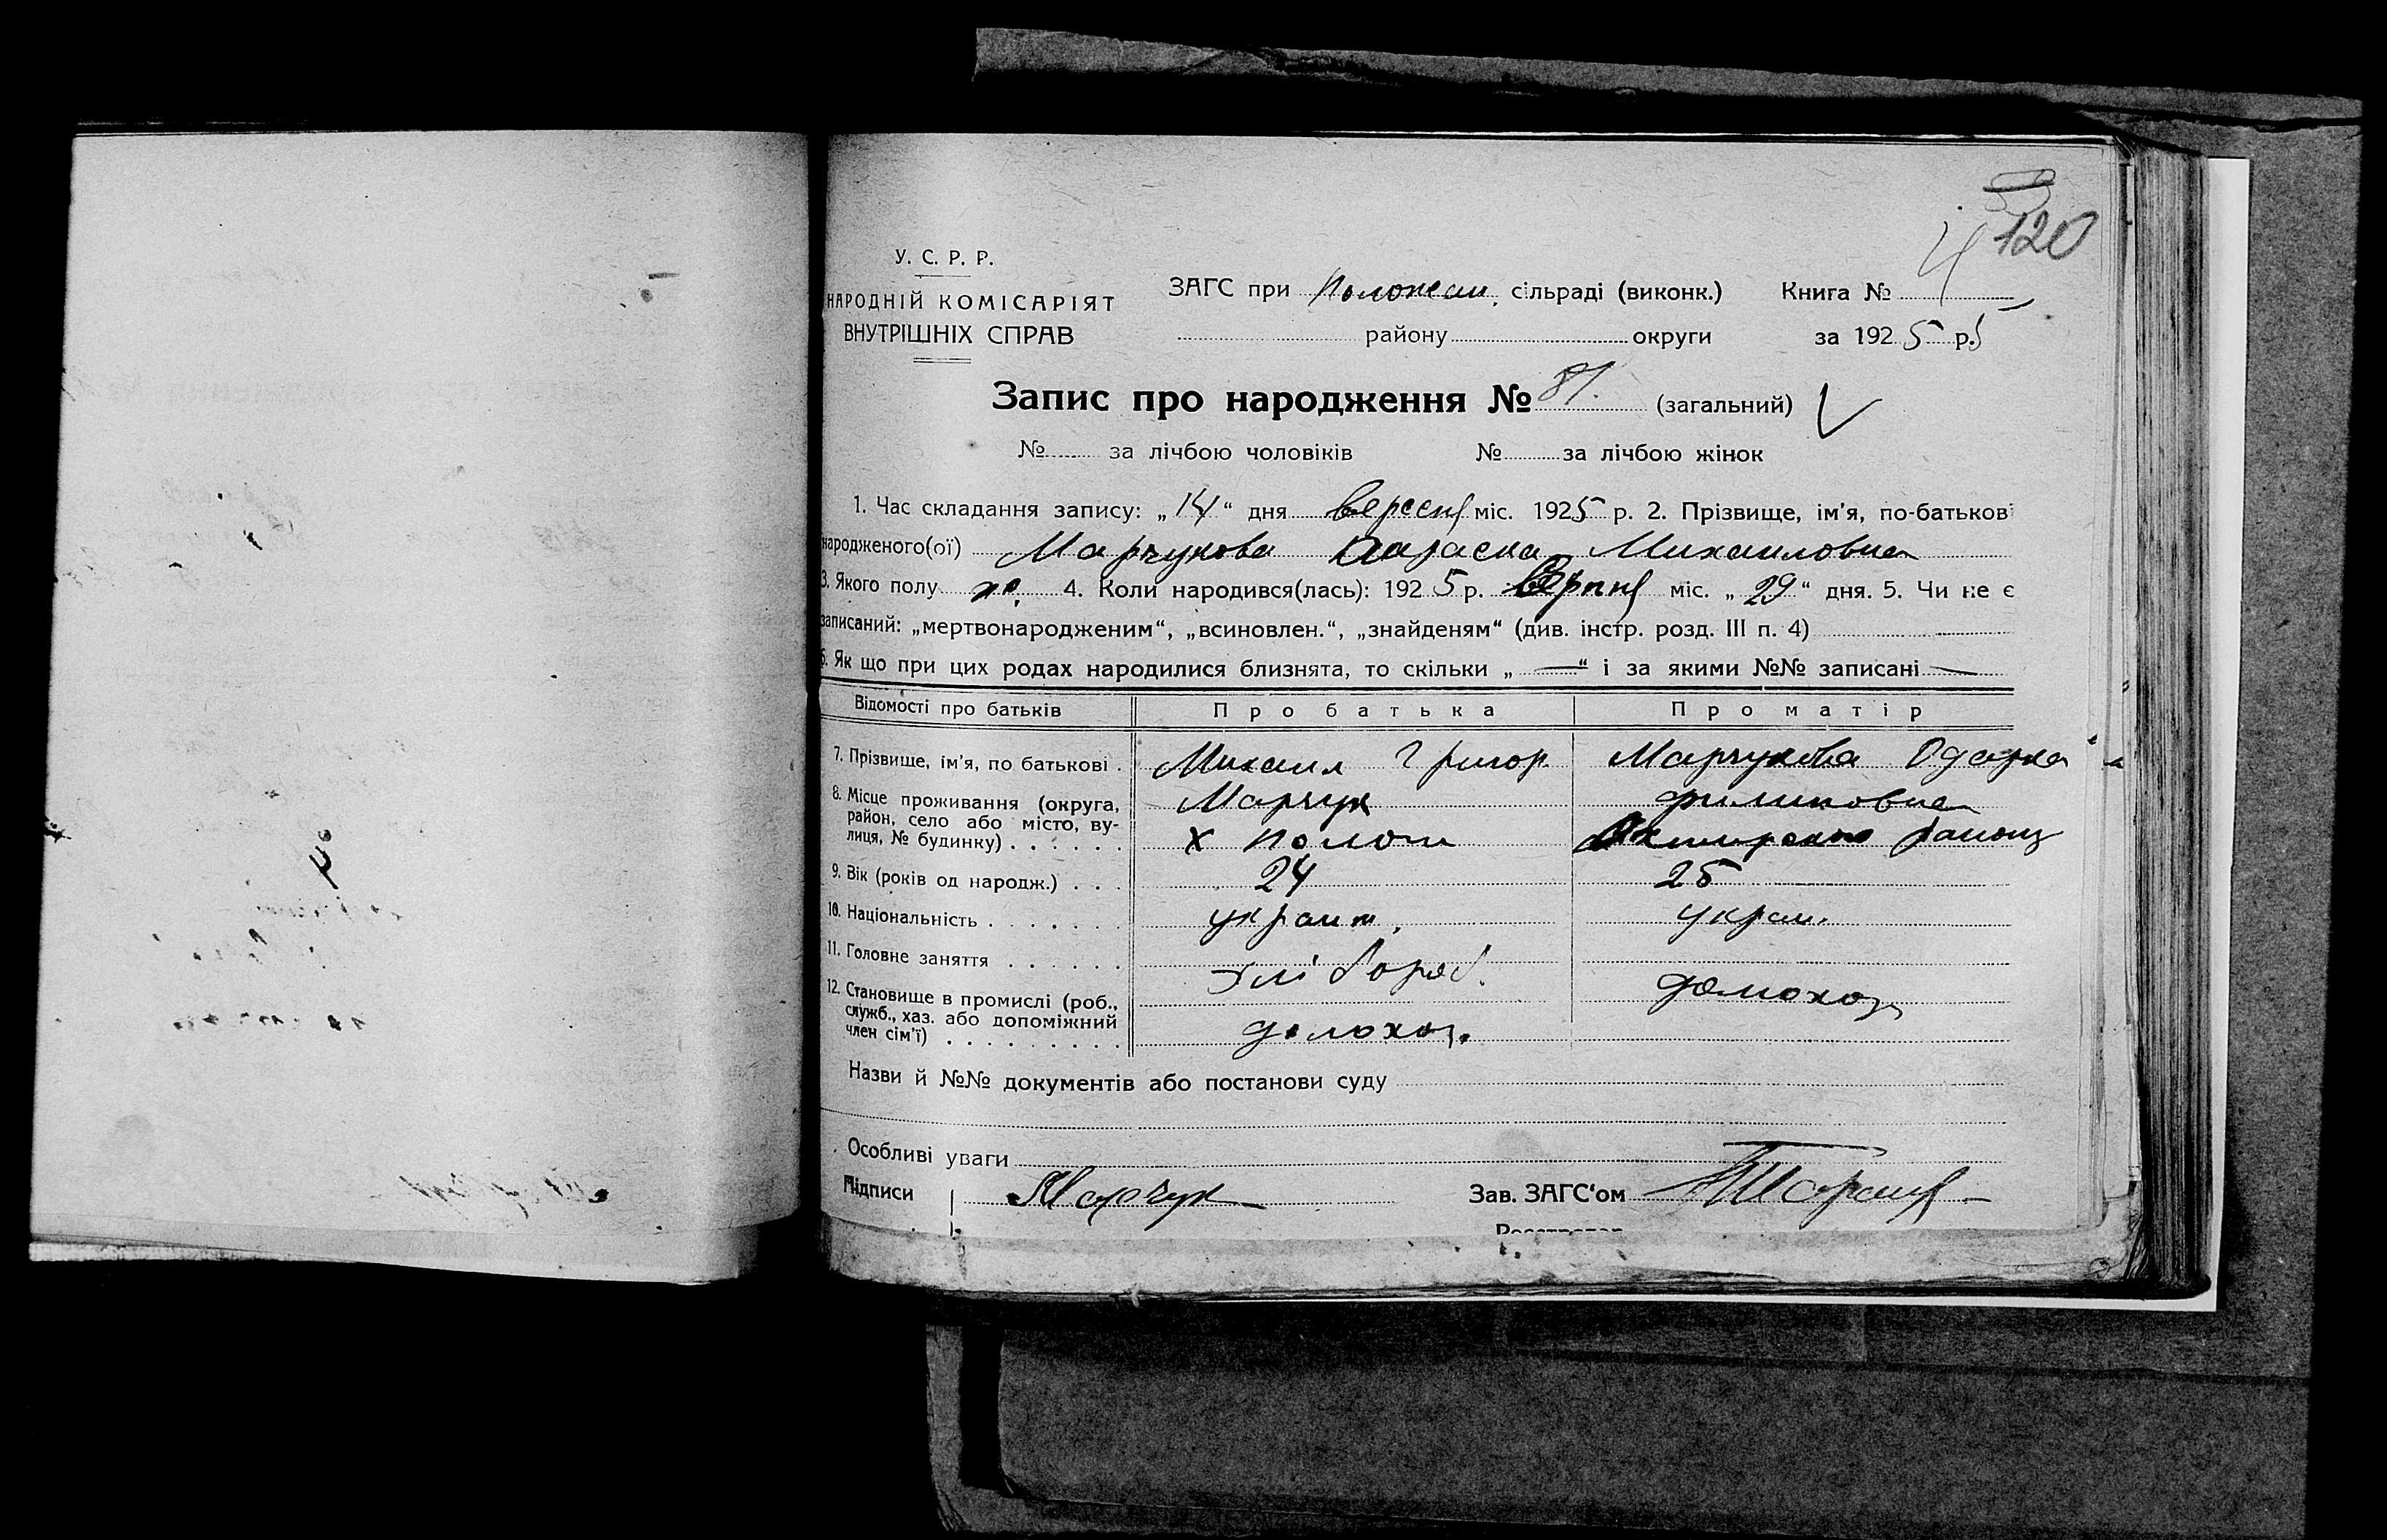 120
У. С. Р. Р.
НАРОДНІЙ КОМІСАРІЯТ
ВНУТРІШНІХ СПРАВ
ЗАГС при сільраді (виконк.) Книга № 4
району округи за 1925 р.
Запис про народження № 81. (загальний)
№ за лічбою чоловіків № за лічбою жінок
1. Час складання запису: „14“ дня вересня міс. 1925 р. 2. Прізвище, ім'я, по-батькові
народженого(ої) Марчукова Параска Михаиловна
3. Якого полу ж. 4. Коли народився(лась): 1925 р. Серпня міс. „29“ дня. 5. Чи не є
записаний: „мертвонародженим“, „всиновлен.“, „знайденям“ (див. інстр. розд. III п. 4)
6. Як що при цих родах народилися близнята, то скільки „—“ і за якими №№ записані —
Відомості про батьків Про батька Про матір
7. Прізвище, ім'я, по батькові . Михаил Григор. Марчукова Одарка
Марчук Филиповна
8. Місце проживання (округа,
район, село або місто, ву-
лиця, № будинку) . . . . . . х району
9. Вік (років од народж.) . . . 24 25
10. Національність . . . . . . . украин. украи.
11. Головне заняття . . . . . . хлібороб.
12. Становище в промислі (роб.,
служб., хаз. або допоміжний
член сім'ї) . . . . . . . . . домохоз. домохоз
Назви й №№ документів або постанови суду
Особливі уваги
Підписи Марчук Зав. ЗАГС'ом
Реєстратор